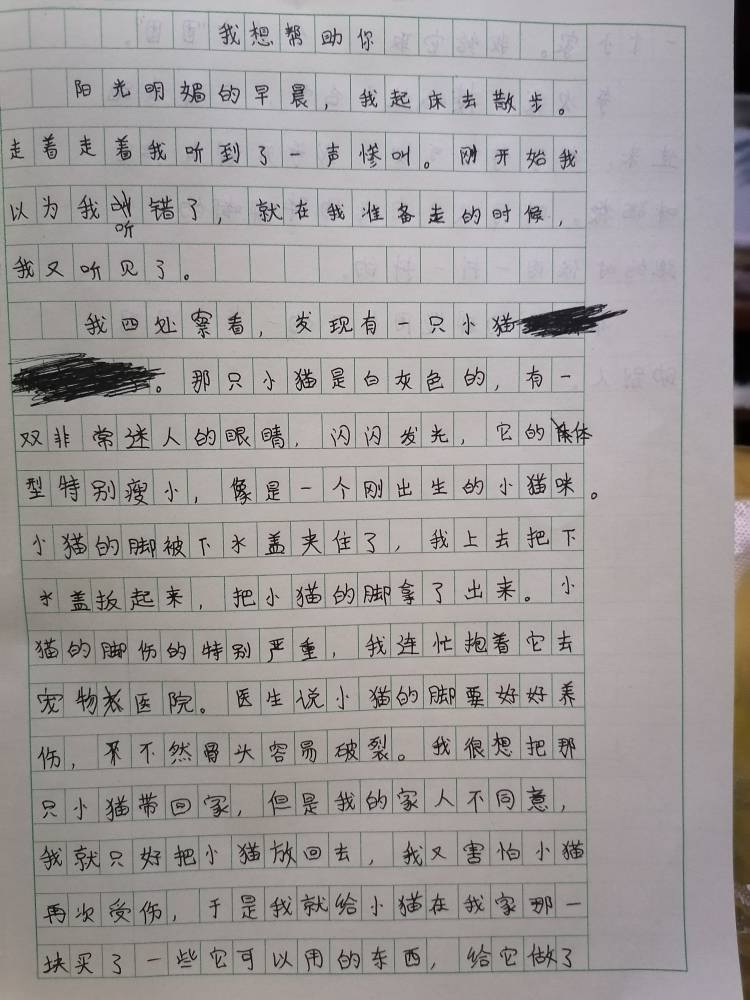 我想帮助你
阳光明媚的早晨，我起床去散步。
走着走着我听到了一声惨叫。刚开始我
以为我听错了，就在我准备走的时候，
我又听见了。
我四处察看，发现有一只小猫
。那只小猫是白灰色的，有一
双非常迷人的眼睛，闪闪发光，它的体
型特别瘦小，像是一个刚出生的小猫咪。
小猫的脚被下水盖夹住了，我上去把下
水盖扳起来，把小猫的脚拿了出来。小
猫的脚伤的特别严重，我连忙抱着它去
宠物医院。医生说小猫的脚要好好养
伤，不然骨头容易破裂。我很想把那
只小猫带回家，但是我的家人不同意，
我就只好把小猫放回去，我又害怕小猫
再次受伤，于是我就给小猫在我家那一
块买了一些它可以用的东西，给它做了